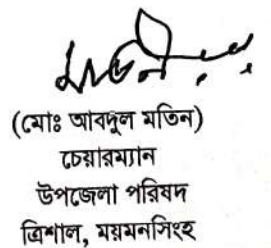 (মোঃ আবদুল মতিন)
চেয়ারম্যান
উপজেলা পরিষদ
ত্রিশাল, ময়মনসিংহ